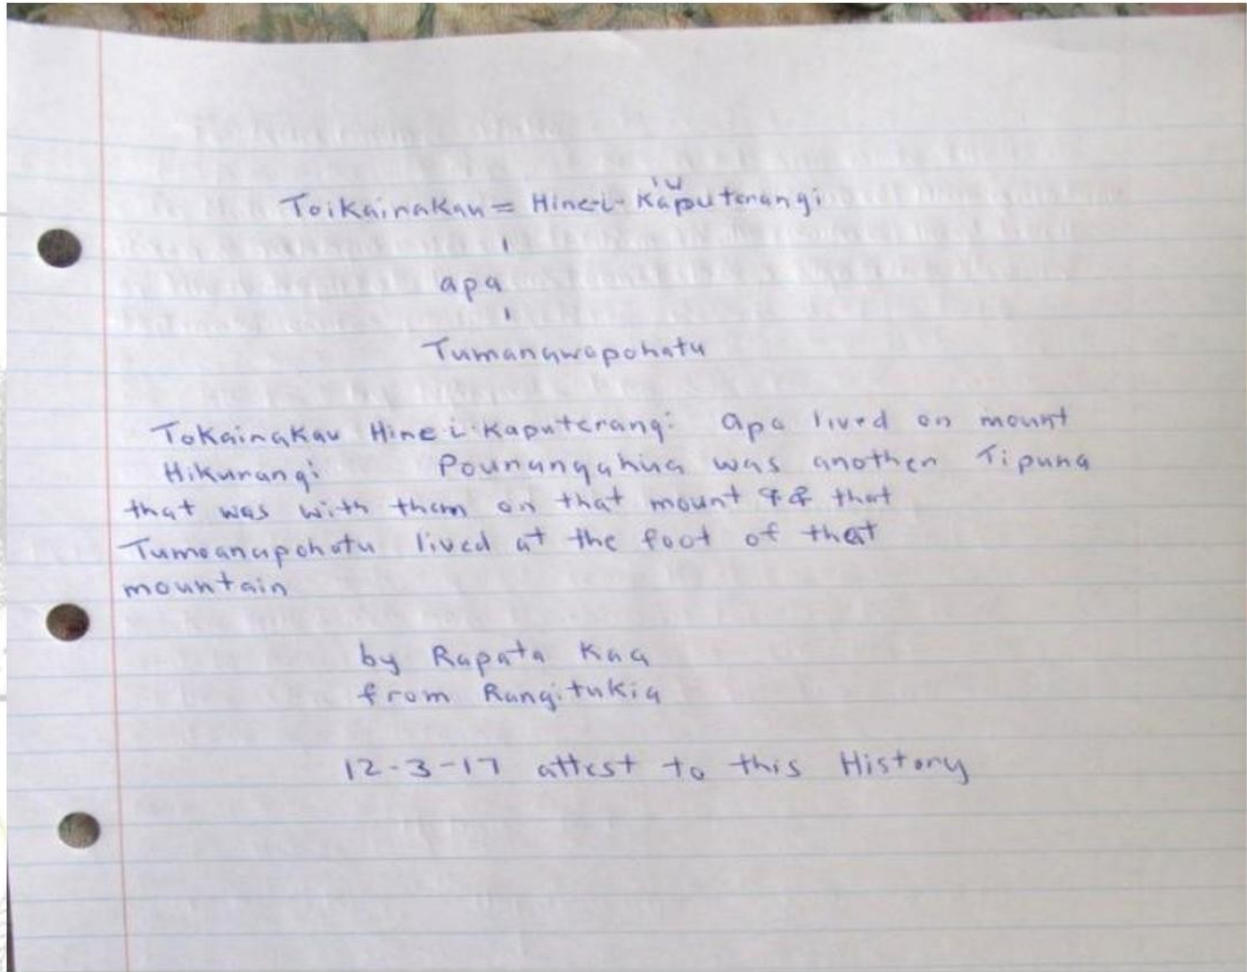 Toikainakau = Hine-i-Kaputerangi
apa
Tumanawapohatu
Tokainakau Hine i Kaputerangi apa lived on mount
Hikurangi Pounangahua was another Tipuna
that was with them on that mount that
Tumoanapohatu lived at the foot of that
mountain
by Rapata Kaa
from Rangitukia
12-3-17 attest to this History